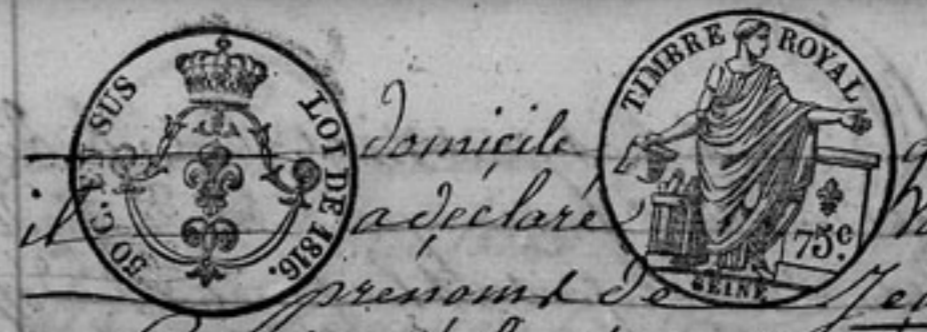 50 C. EN SUS
LOI DE 1816.
TIMBRE ROYAL
75c.
SEINE
domicile
il a déclaré
prenoms de